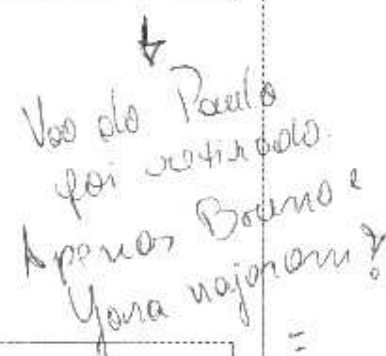 Voo do Paulo
foi retirado.
Apenas Bruno e
Yara viajaram?